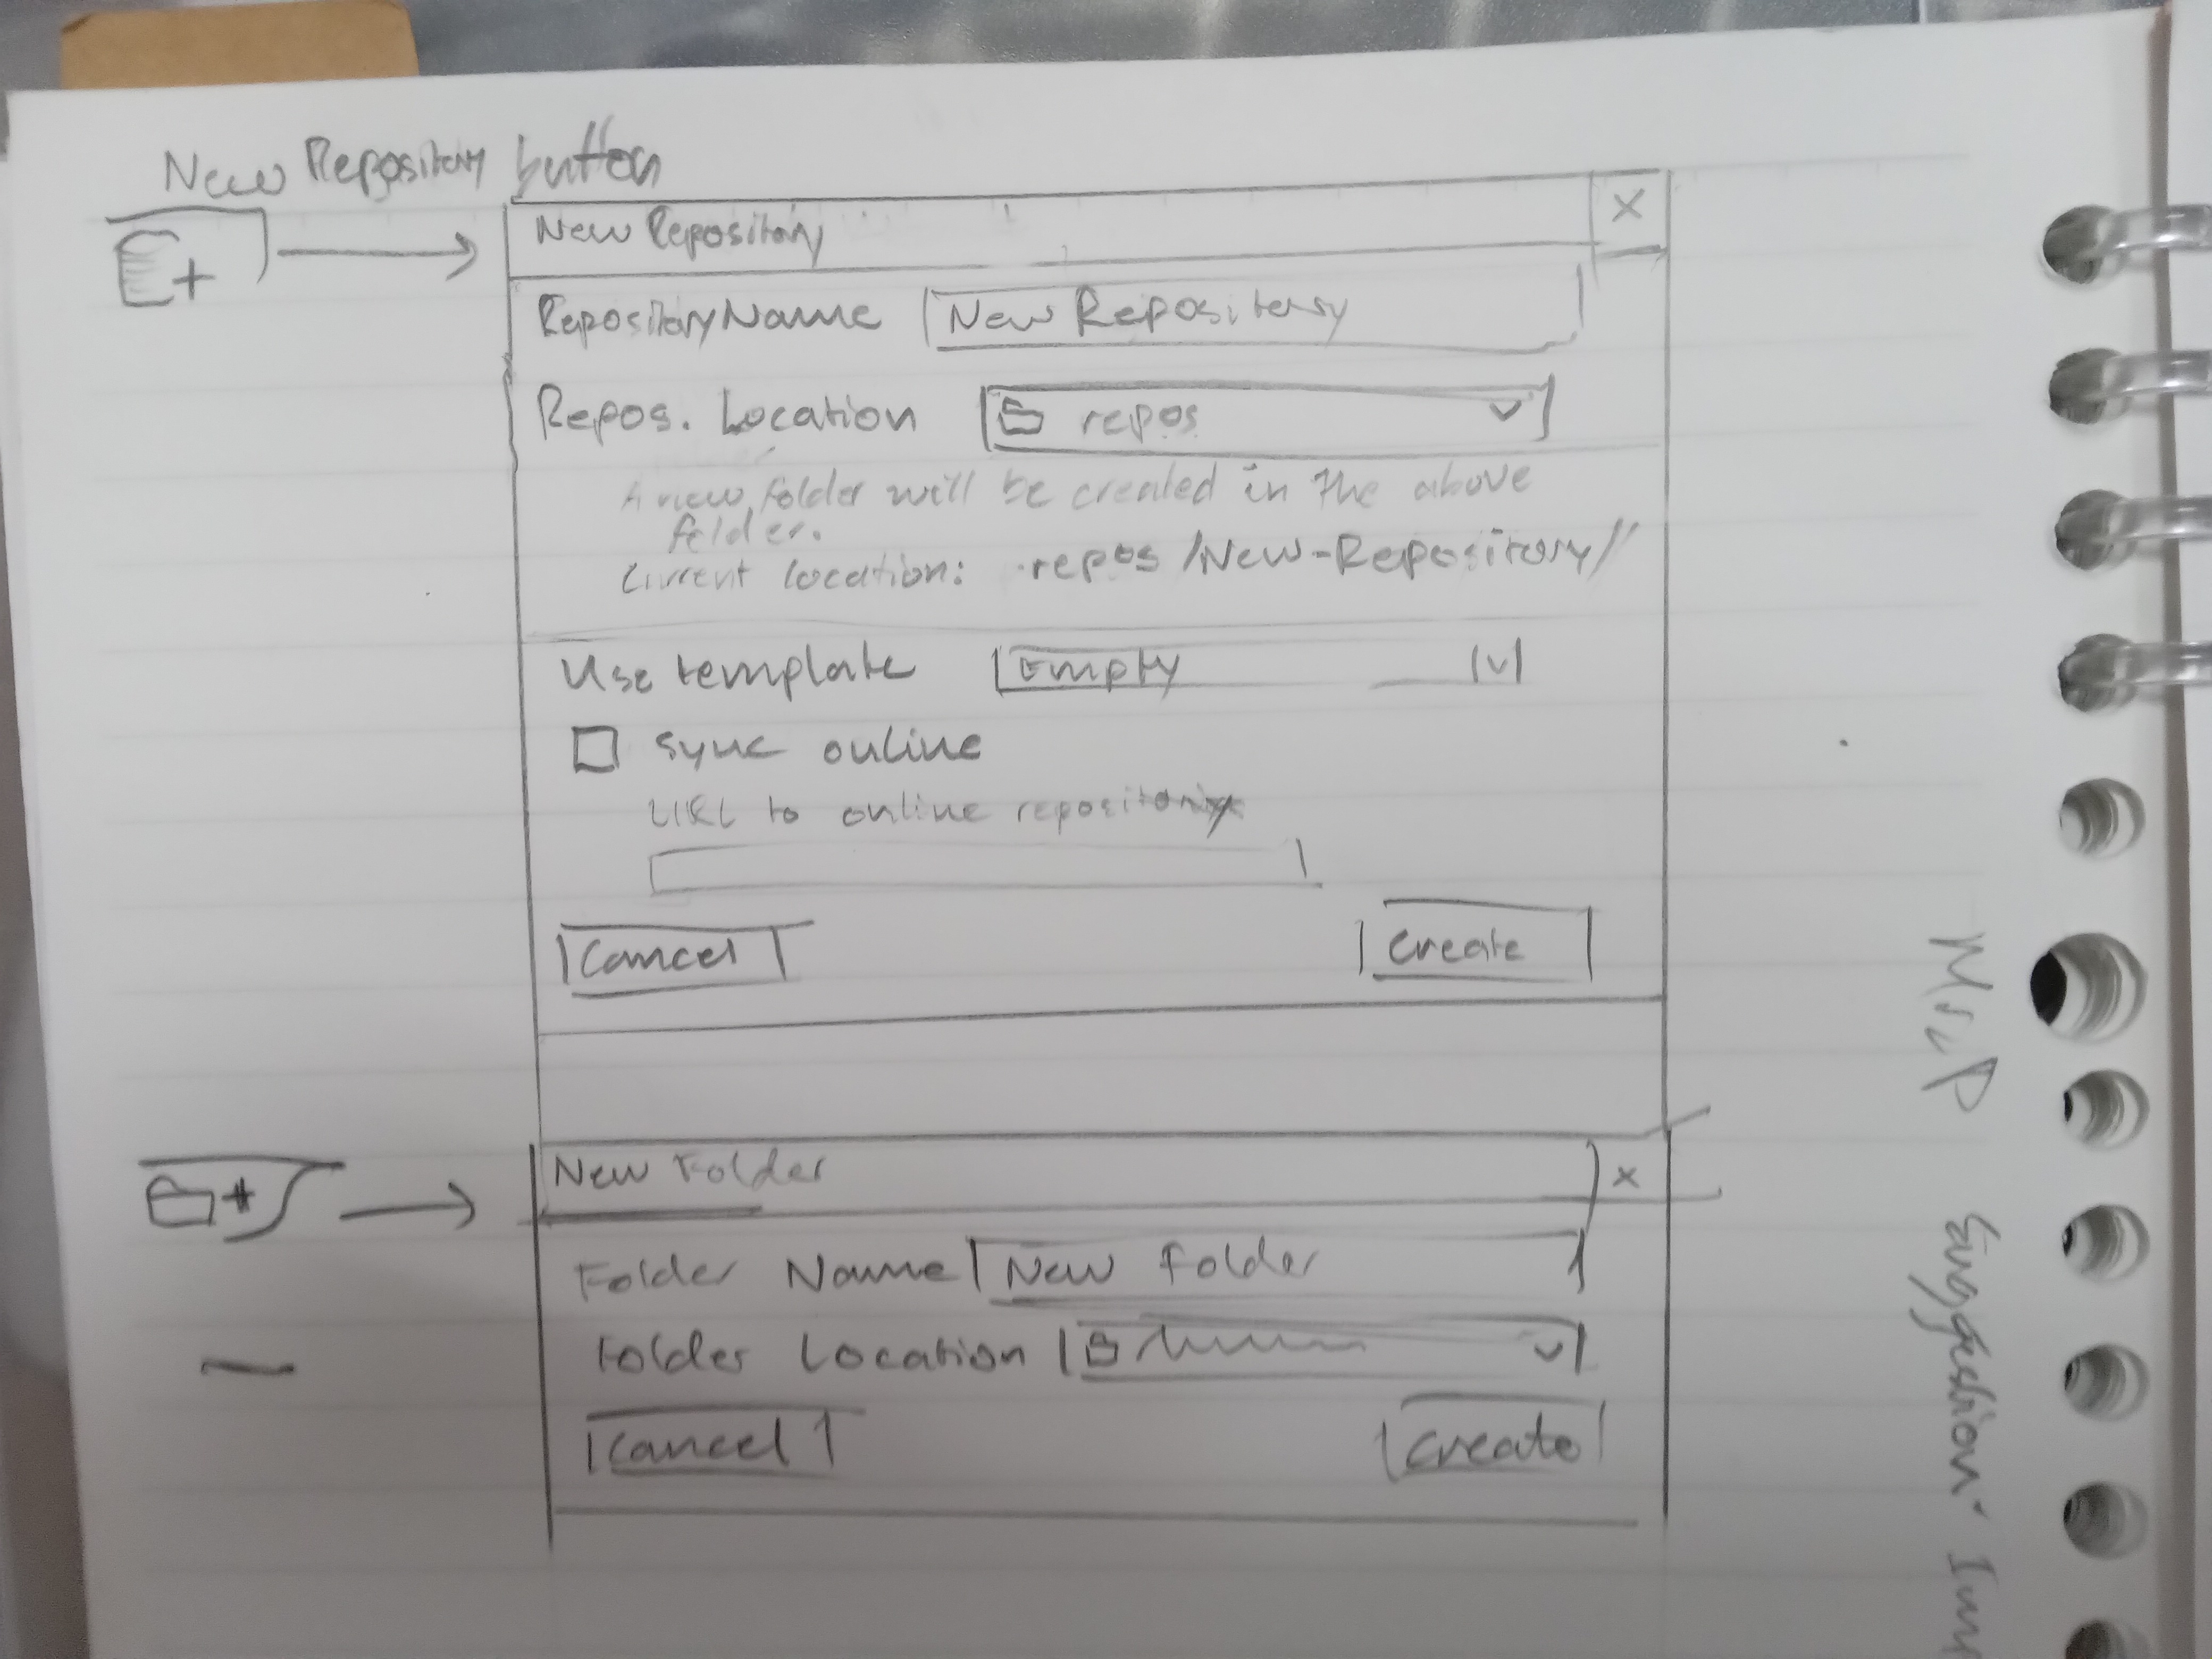 New Repository button
New Repository X
Repository Name New Repository
Repos. Location repos
A new folder will be created in the above
folder.
Current location: repos/New-Repository/
Use template Empty
sync online
URL to online repository
Cancel Create
New Folder x
Folder Name New Folder
Folder Location
Cancel Create
Suggestion